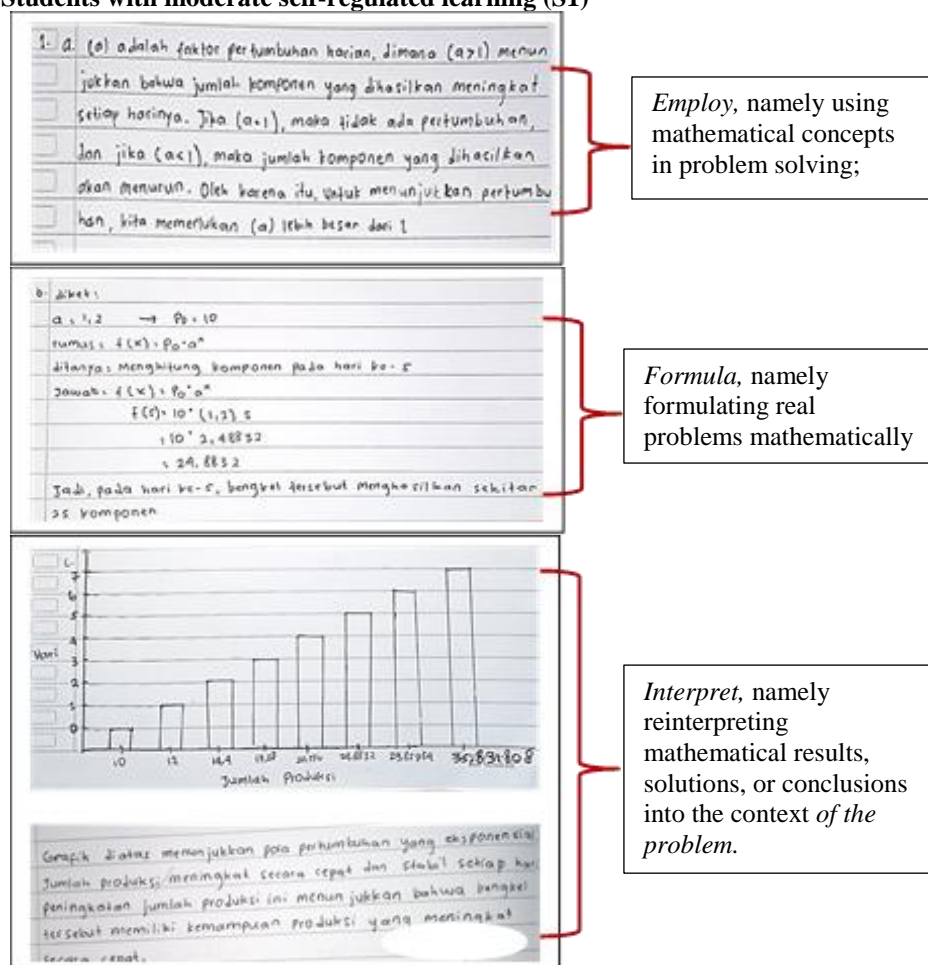 Students with moderate self-regulated learning (S1)
1. a. (a) adalah faktor pertumbuhan harian, dimana (a>1) menun
jukkan bahwa jumlah komponen yang dihasilkan meningkat
setiap harinya. Jika (a=1), maka tidak ada pertumbuhan,
dan jika (a<1), maka jumlah komponen yang dihasilkan
akan menurun. Oleh karena itu, untuk menunjukkan pertumbu
han, kita memerlukan (a) lebih besar dari 1
Employ, namely using
mathematical concepts
in problem solving;
b. diket:
a = 1,2 → P₀ = 10
rumus = f(x) = P₀·aˣ
ditanya: Menghitung komponen pada hari ke-5
Jawab = f(x) = P₀·aˣ
f(5) = 10·(1,2) 5
= 10·2,48832
= 24,8832
Jadi, pada hari ke-5, bengkel tersebut menghasilkan sekitar
25 komponen
Formula, namely
formulating real
problems mathematically
c.
7
6
5
4
Hari 3
2
1
0
10 12 14,4 17,28 24,8832 29,85984 35,831808
Jumlah Produksi
Grafik diatas menunjukkan pola pertumbuhan yang eksponensial
Jumlah produksi meningkat secara cepat dan stabil setiap hari
peningkatan jumlah produksi ini menunjukkan bahwa bengkel
tersebut memiliki kemampuan produksi yang meningkat
secara cepat.
Interpret, namely
reinterpreting
mathematical results,
solutions, or conclusions
into the context of the
problem.